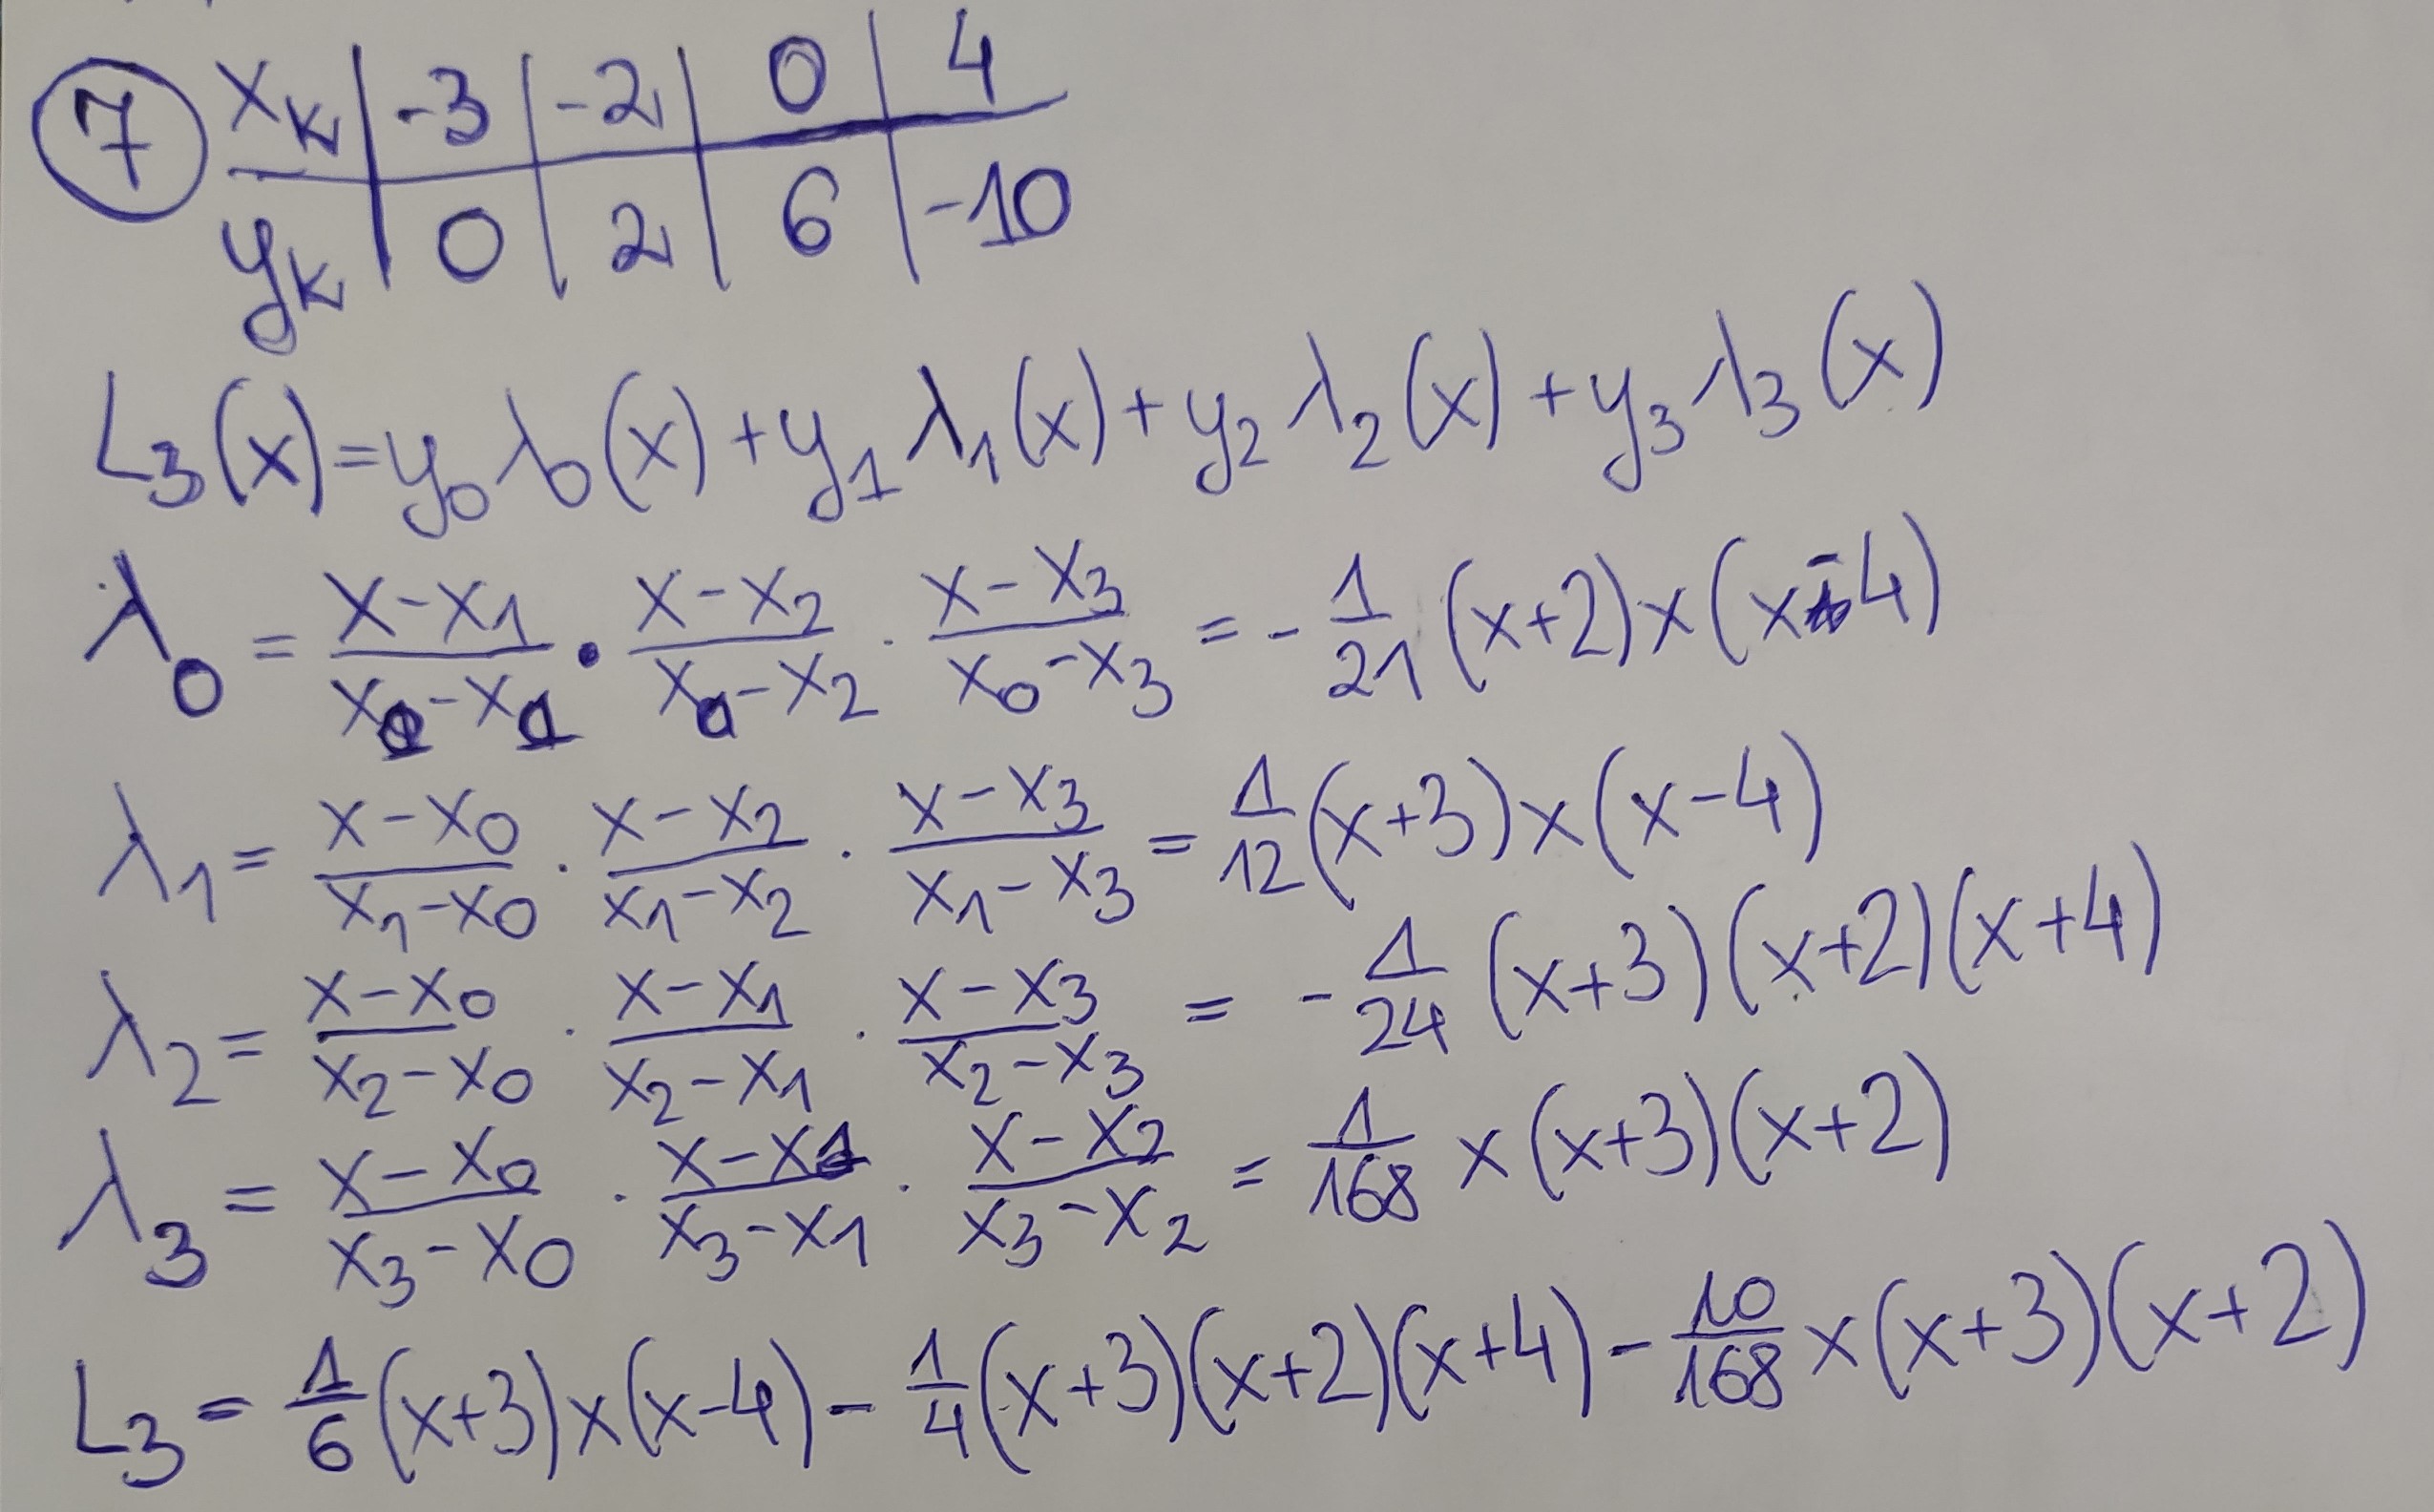 7 xₖ | -3 | -2 | 0 | 4
yₖ | 0 | 2 | 6 | -10
L₃(x)=y₀λ₀(x)+y₁λ₁(x)+y₂λ₂(x)+y₃λ₃(x)
λ₀ = (x-x₁)/(x₀-x₁) · (x-x₂)/(x₀-x₂) · (x-x₃)/(x₀-x₃) = -1/21 (x+2)x(x-4)
λ₁ = (x-x₀)/(x₁-x₀) · (x-x₂)/(x₁-x₂) · (x-x₃)/(x₁-x₃) = 1/12 (x+3)x(x-4)
λ₂ = (x-x₀)/(x₂-x₀) · (x-x₁)/(x₂-x₁) · (x-x₃)/(x₂-x₃) = -1/24 (x+3)(x+2)(x+4)
λ₃ = (x-x₀)/(x₃-x₀) · (x-x₁)/(x₃-x₁) · (x-x₂)/(x₃-x₂) = 1/168 x(x+3)(x+2)
L₃ = 1/6 (x+3)x(x-4) - 1/4 (x+3)(x+2)(x+4) - 10/168 x(x+3)(x+2)